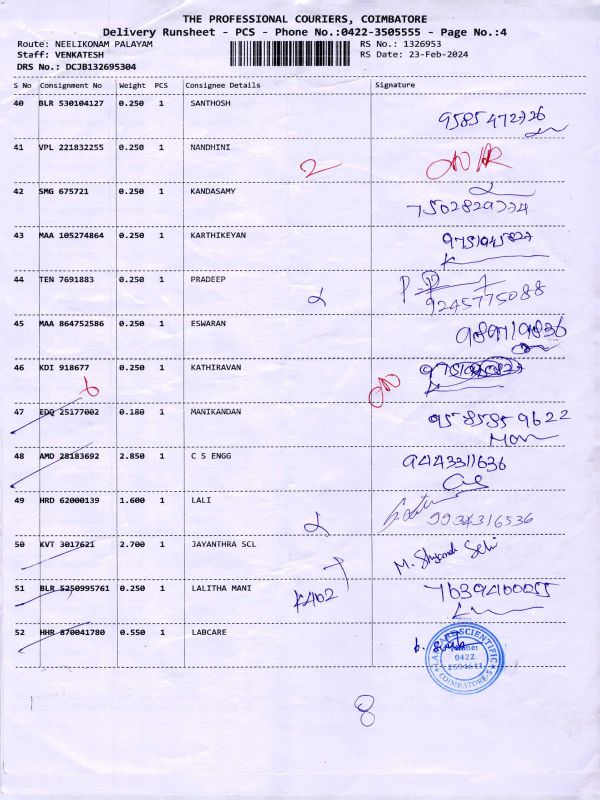 THE PROFESSIONAL COURIERS, COIMBATORE
Delivery Runsheet - PCS - Phone No.:0422-3505555 - Page No.:4
Route: NEELIKONAM PALAYAM RS No.: 1326953
Staff: VENKATESH RS Date: 23-Feb-2024
DRS No.: DCJB132695304
S No Consignment No Weight PCS Consignee Details Signature
40 BLR 530104127 0.250 1 SANTHOSH
9585472726
41 VPL 221832255 0.250 1 NANDHINI
2
42 SMG 675721 0.250 1 KANDASAMY
7502829774
43 MAA 105274864 0.250 1 KARTHIKEYAN
9751945827
44 TEN 7691883 0.250 1 PRADEEP
9245775088
45 MAA 864752586 0.250 1 ESWARAN
9894719836
46 KDI 918677 0.250 1 KATHIRAVAN
6
47 EDQ 25177002 0.180 1 MANIKANDAN
9585859622
48 AMD 28183692 2.850 1 C S ENGG
9443311636
49 HRD 62000139 1.600 1 LALI
9934316536
50 KVT 3017621 2.700 1 JAYANTHRA SCL
51 BLR 5250995761 0.250 1 LALITHA MANI
7639400055
52 HHR 870041780 0.550 1 LABCARE
SCIENTIFIC
0422
2594641
COIMBATORE
8